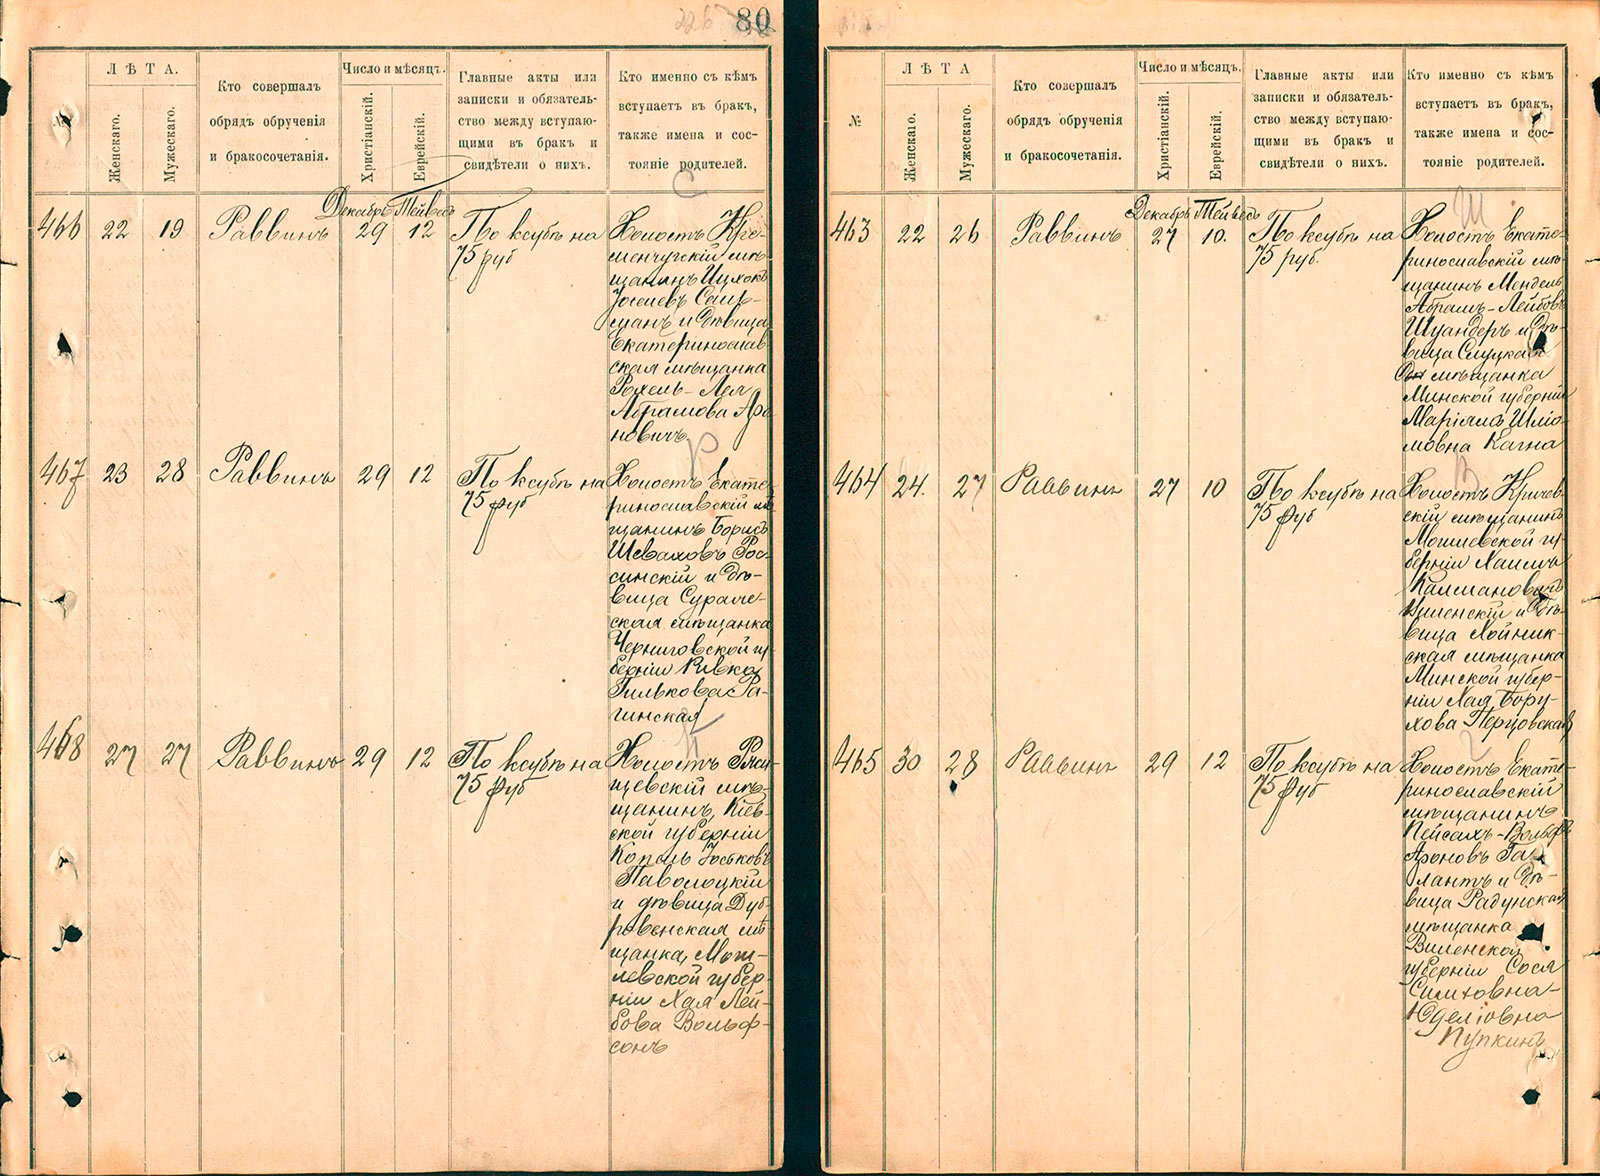 80
№
ЛѢТА.
Женскаго.
Мужескаго.
Кто совершалъ
обрядъ обрученія
и бракосочетанія.
Число и мѣсяцъ.
Христіанскій.
Еврейскій.
Главные акты или
записки и обязатель-
ство между вступаю-
щими въ бракъ и
свидѣтели о нихъ.
Кто именно съ кѣмъ
вступаетъ въ бракъ,
также имена и сос-
тояніе родителей.
С
466
22
19
Раввинъ
Декабрь
29
Тейвесъ
12
По ксубѣ на
75 руб
Холостъ Кре-
менчугскій мѣ-
щанинъ Ицхокъ
Іосіевъ
и дѣвица
Екатеринослав
ская мѣщанка
Рохель-Лея
Абрамова Аро
новичъ
Р
467
23
28
Раввинъ
29
12
По ксубѣ на
75 руб
Холостъ Екате-
ринославскій мѣ
щанинъ Борисъ
Шеваховъ Рос-
синскій и дѣ-
вица Суражс-
кая мѣщанка
Черниговской гу-
берніи Ривка
Гилькова Ра-
гинская
468
27
27
Раввинъ
29
12
По ксубѣ на
75 руб
Холостъ Ржи-
щевскій мѣ-
щанинъ, Кіев-
ской губерніи
Копель
Паволоцкій
и дѣвица Дуб-
ровенская мѣ
щанка, Моги-
левской губер-
ніи Хая Лей-
бова Вольф-
сонъ
№
ЛѢТА
Женскаго.
Мужескаго.
Кто совершалъ
обрядъ обрученія
и бракосочетанія.
Число и мѣсяцъ.
Христіанскій.
Еврейскій.
Главные акты или
записки и обязатель-
ство между вступаю-
щими въ бракъ и
свидѣтели о нихъ.
Кто именно съ кѣмъ
вступаетъ въ бракъ,
также имена и сос-
тояніе родителей.
Ш
463
22
26
Раввинъ
Декабрь
27
Тейвесъ
10.
По ксубѣ на
75 руб.
Холостъ Екате-
ринославскій мѣ-
щанинъ Мендель
Абрамъ-Лейбовъ
Шуандеръ и дѣ-
вица Слуцкая
мѣщанка
Минской губерніи
Маріамъ Шліо-
мовна Кагна
В
464
24.
27
Раввинъ
27
10
По ксубѣ на
75 руб
Холостъ Кричев-
скій мѣщанинъ
Могилевской гу-
берніи Хаимъ
Калмановъ
Виленскій и дѣ-
вица Хойник-
ская мѣщанка
Минской губер-
ніи Хая Бору-
хова Перцовская
465
30
28
Раввинъ
29
12
По ксубѣ на
75 руб
Холостъ Екате-
ринославскій
мѣщанинъ
Пейсахъ-Вольфъ
Ароновъ Га-
лантъ и дѣ-
вица Радунская
мѣщанка
Виленской
губерніи Сося
Симховна-
Юделіовна
Пупкинъ